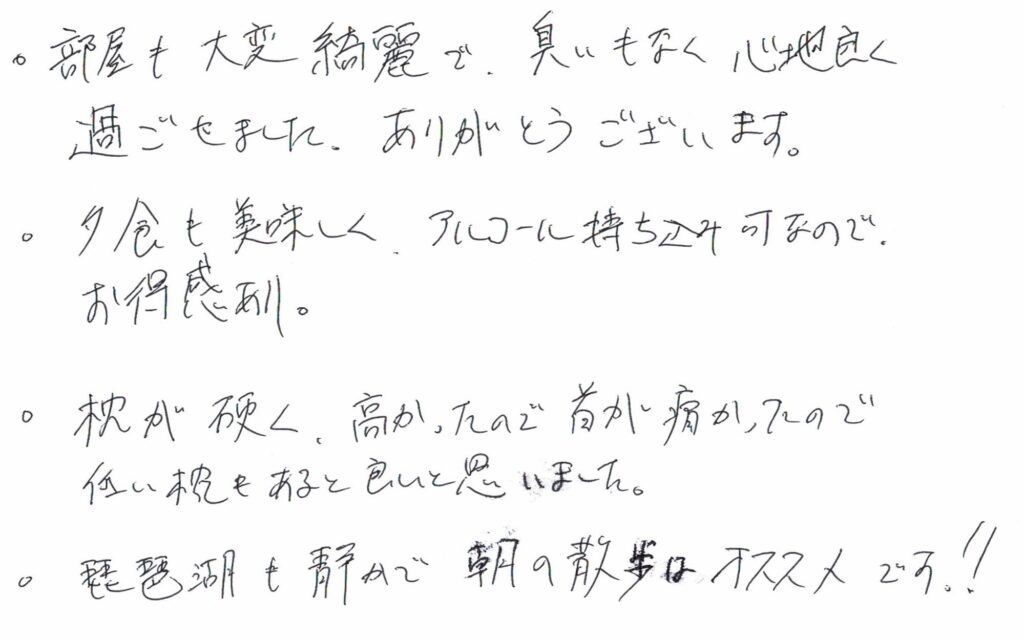 。部屋も大変綺麗で、臭いもなく心地良く
過ごせました。ありがとうございます。
。夕食も美味しく、アルコール持ち込み可なので、
お得感あり。
。枕が硬く、高かったので首が痛かったので
低い枕もあると良いと思いました。
。琵琶湖も静かで朝の散歩はオススメです!!